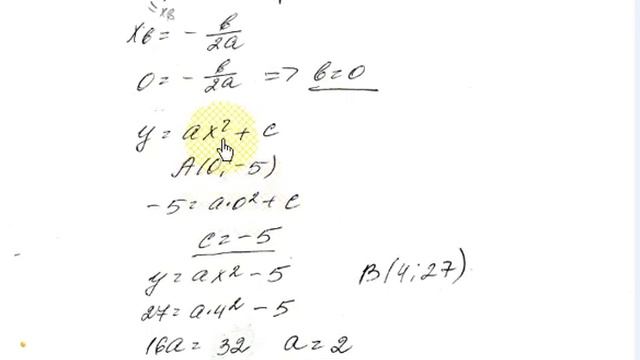 = xв
xв = - в/2a
0 = - в/2a => в=0
y = ax² + c
A(0; -5)
-5 = a·0² + c
c = -5
y = ax² - 5 B(4; 27)
27 = a·4² - 5
16a = 32 a = 2